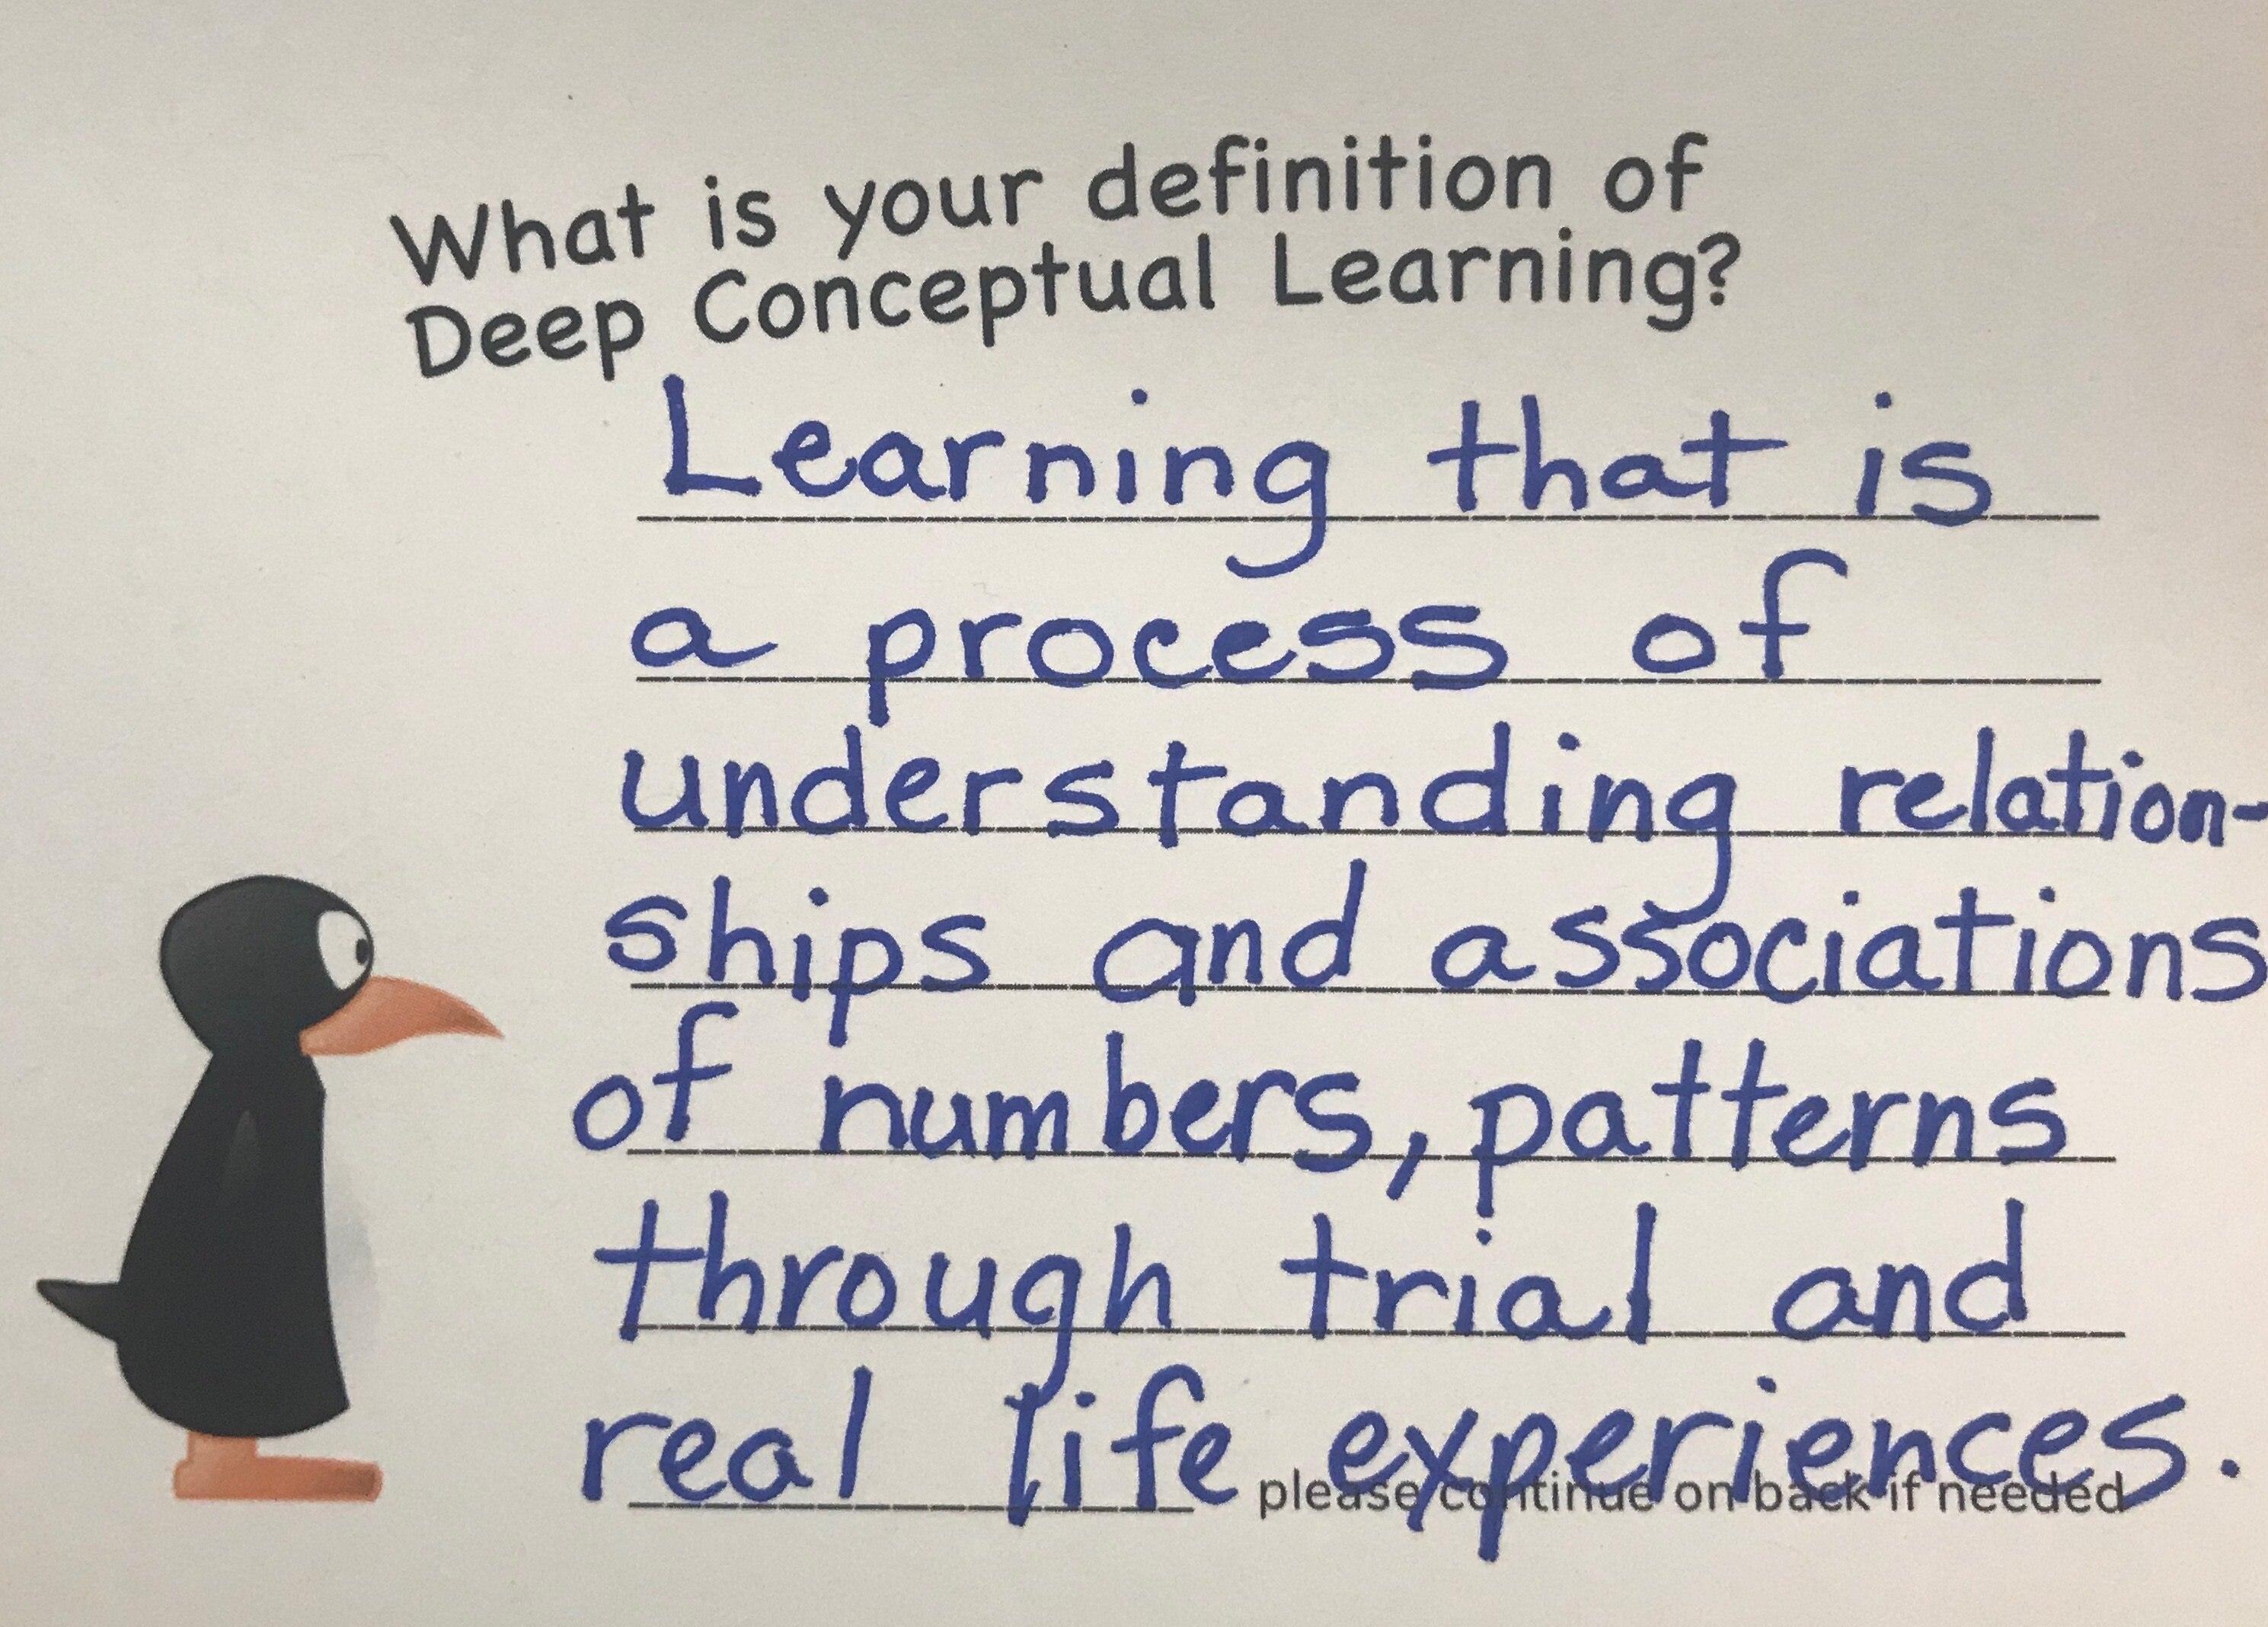 What is your definition of
Deep Conceptual Learning?
Learning that is
a process of
understanding relation-
ships and associations
of numbers, patterns
through trial and
real life experiences.
please continue on back if needed